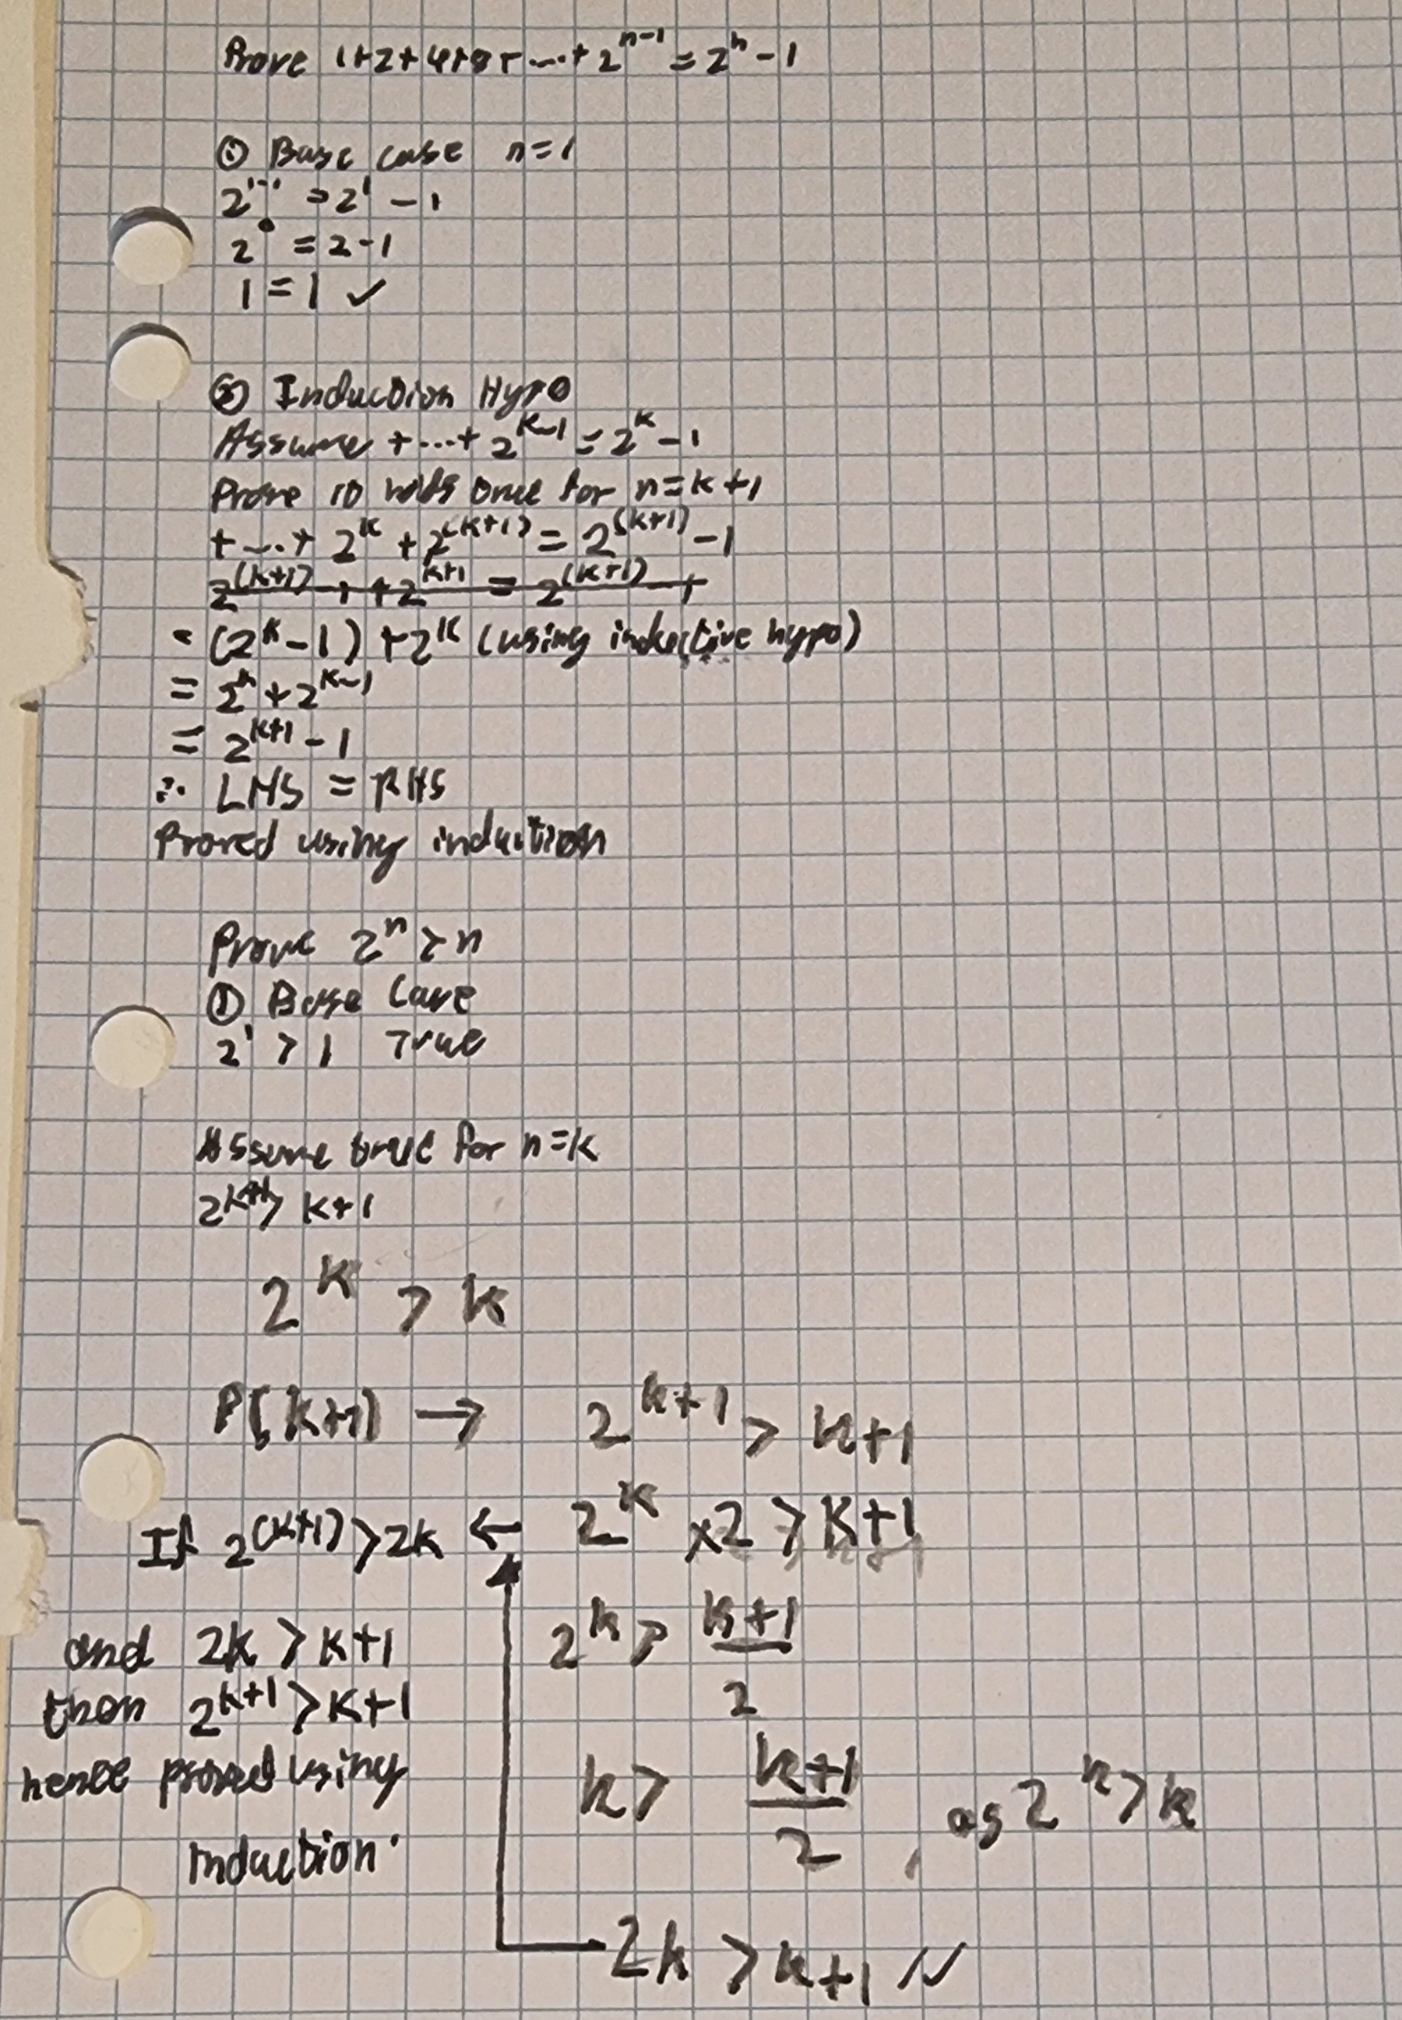 Prove 1+2+4+8+ ...+ 2^{n-1} = 2^n - 1
① Base case n=1
2^{1-1} = 2^1 - 1
2^0 = 2-1
1 = 1 ✓
② Induction Hypo
Assume + ...+ 2^{k-1} = 2^k - 1
Prove holds true for n=k+1
+ ...+ 2^k + 2^{(k+1)} = 2^{(k+1)} - 1
= (2^k - 1) + 2^k (using inductive hypo)
= 2^k + 2^{k-1}
= 2^{k+1} - 1
∴ LHS = RHS
Proved using induction
Prove 2^n > n
① Base Case
2^1 > 1 True
Assume true for n=k
2^{k+1} > k+1
2^k > k
P(k+1) → 2^{k+1} > k+1
If 2^{(k+1)} > 2k ← 2^k × 2 > k+1
and 2k > k+1
2^k > \frac{k+1}{2}
then 2^{k+1} > k+1
hence proved using
k > \frac{k+1}{2}, as 2^k > k
induction.
2k > k+1 ✓